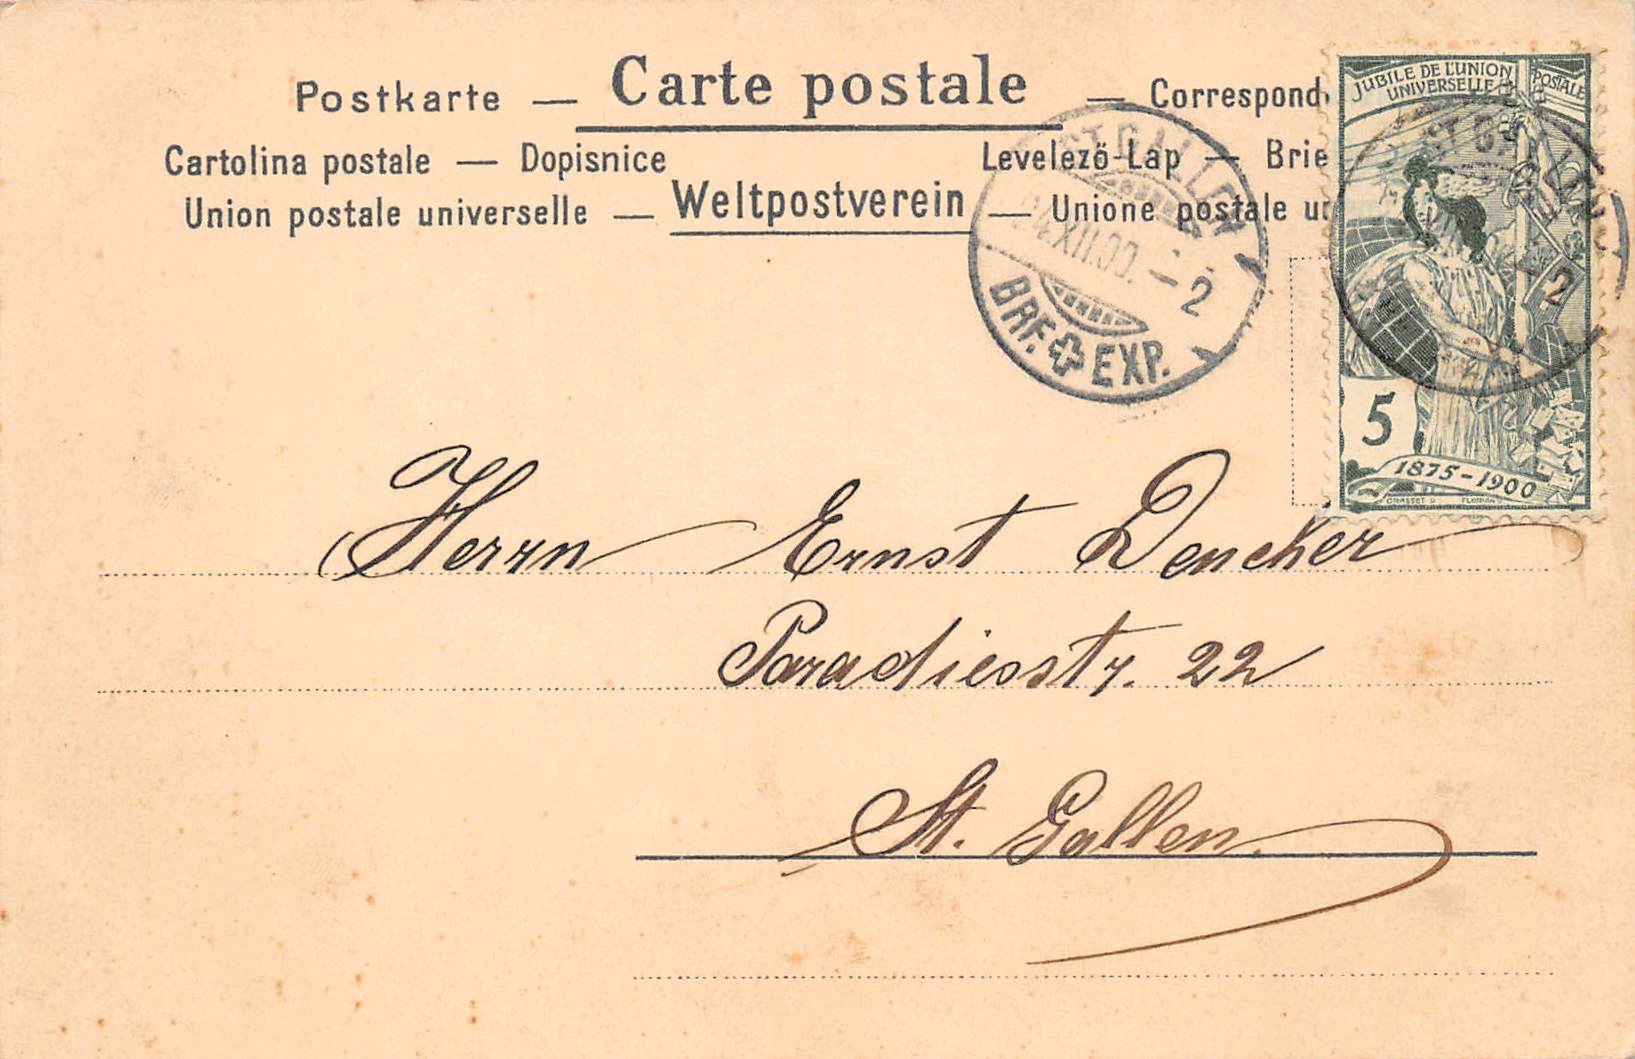 Postkarte — Carte postale — Correspond
Cartolina postale — Dopisnice Levelező-Lap — Brie
Union postale universelle — Weltpostverein — Unione postale u
JUBILÉ DE L'UNION POSTALE
UNIVERSELLE
5
1875-1900
GRASSET D. FLORIAN
ST. GALLEN
24.XII.00.-2
BRF. EXP.
ST. GALLEN
2
Herrn Ernst Dencker
Paradiesstr. 22
St. Gallen.